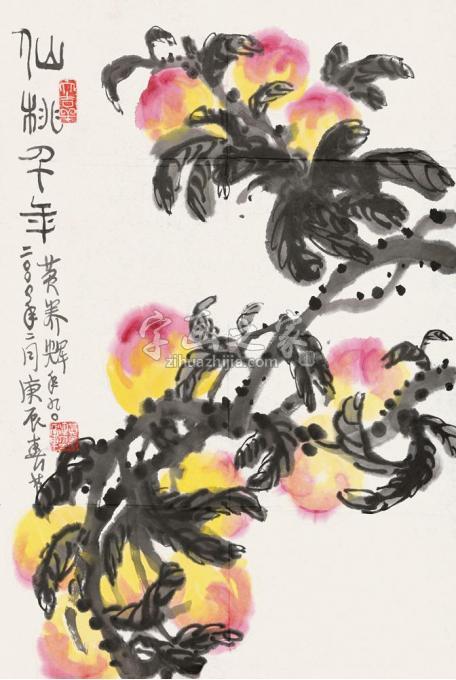 仙桃千年
黄养辉年九〇
二〇〇〇年二月庚辰春节
字画之家
zihuazhijia.com